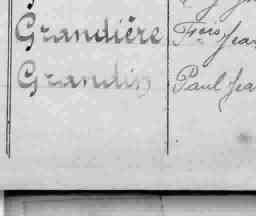 Grandière Frçois Jean
Grandin Paul Jea